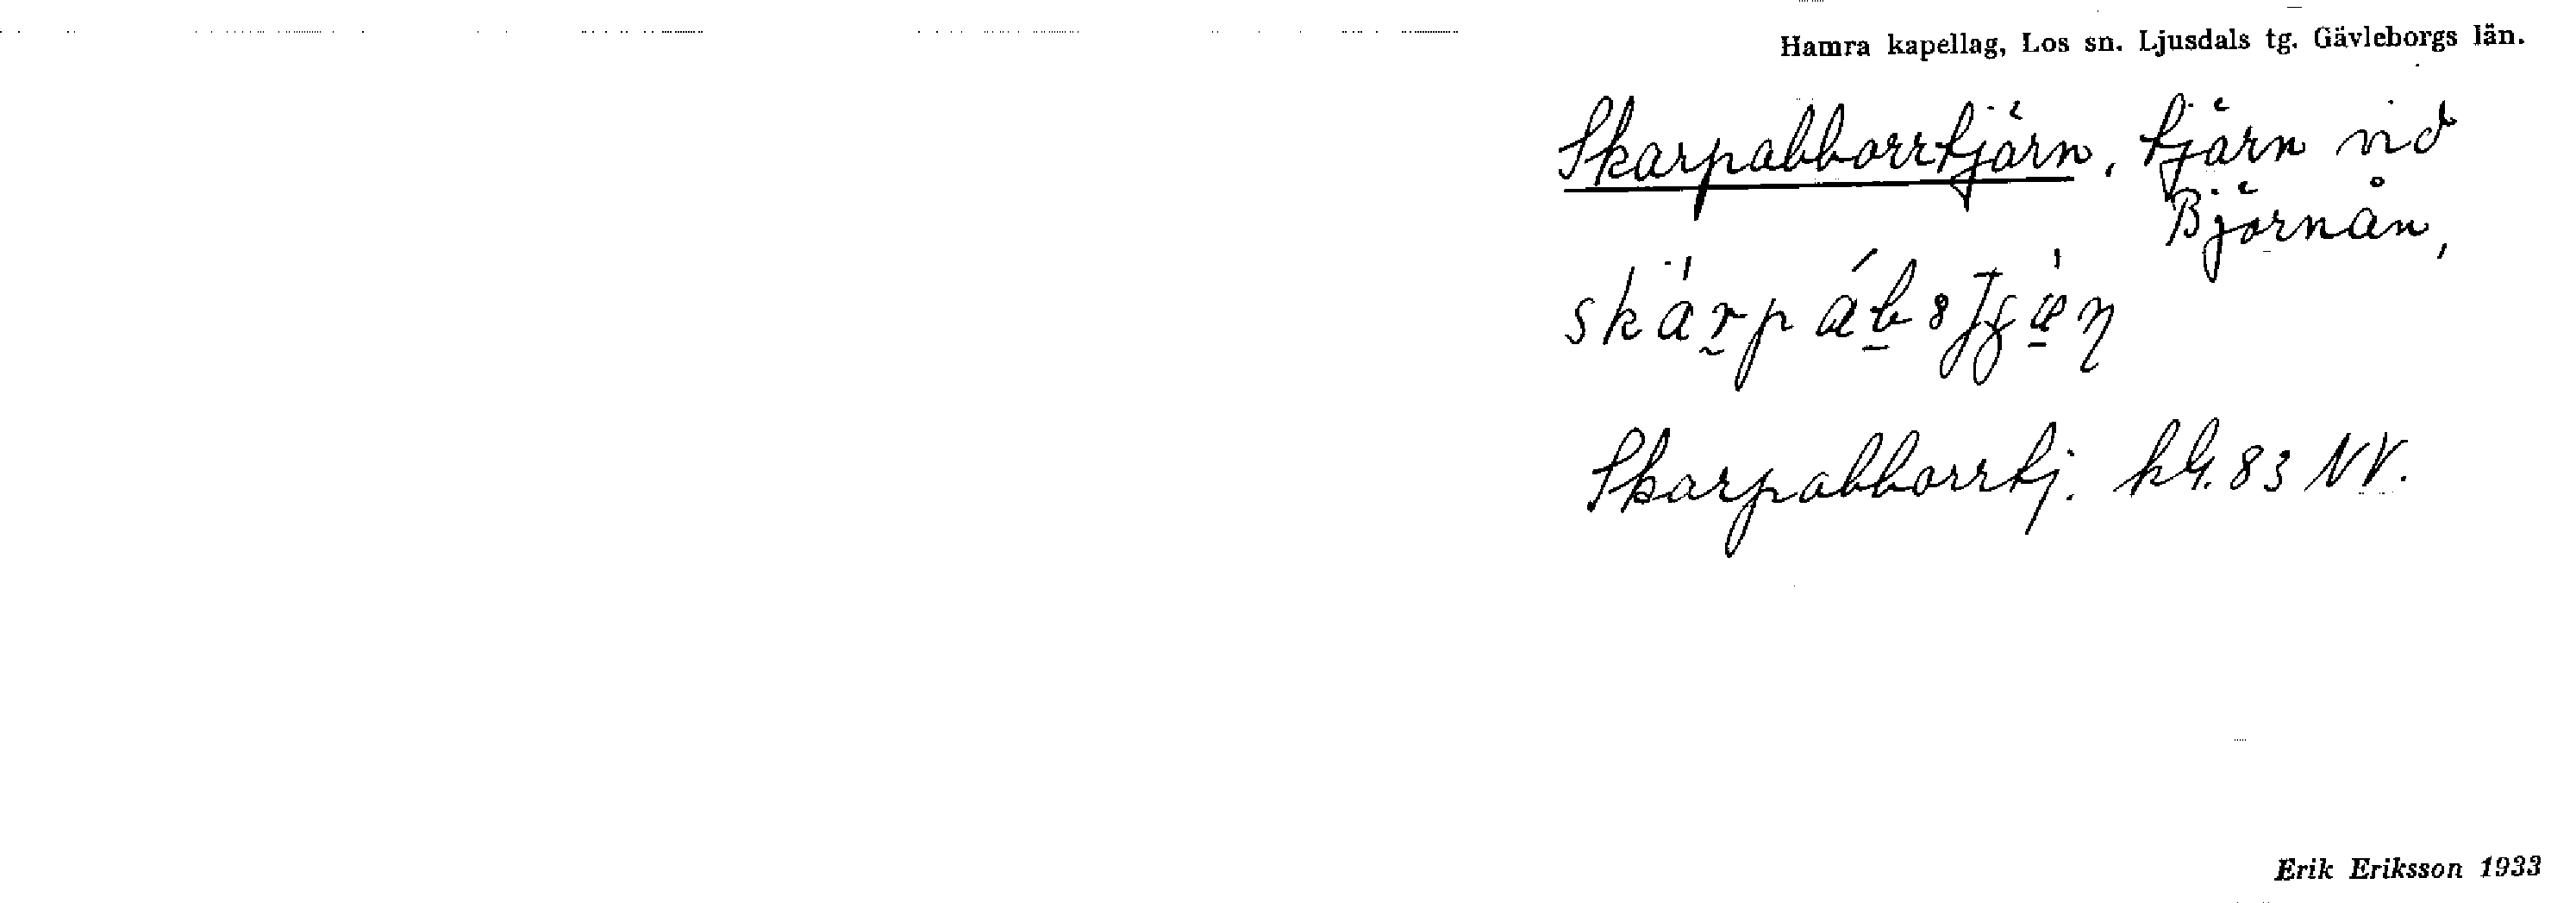 Hamra kapellag, Los sn. Ljusdals tg. Gävleborgs län.
Skarpabborrtjärn, tjärn vid
Björnån,
Skarpabborrtj. kbl. 83 NV.
Erik Eriksson 1933